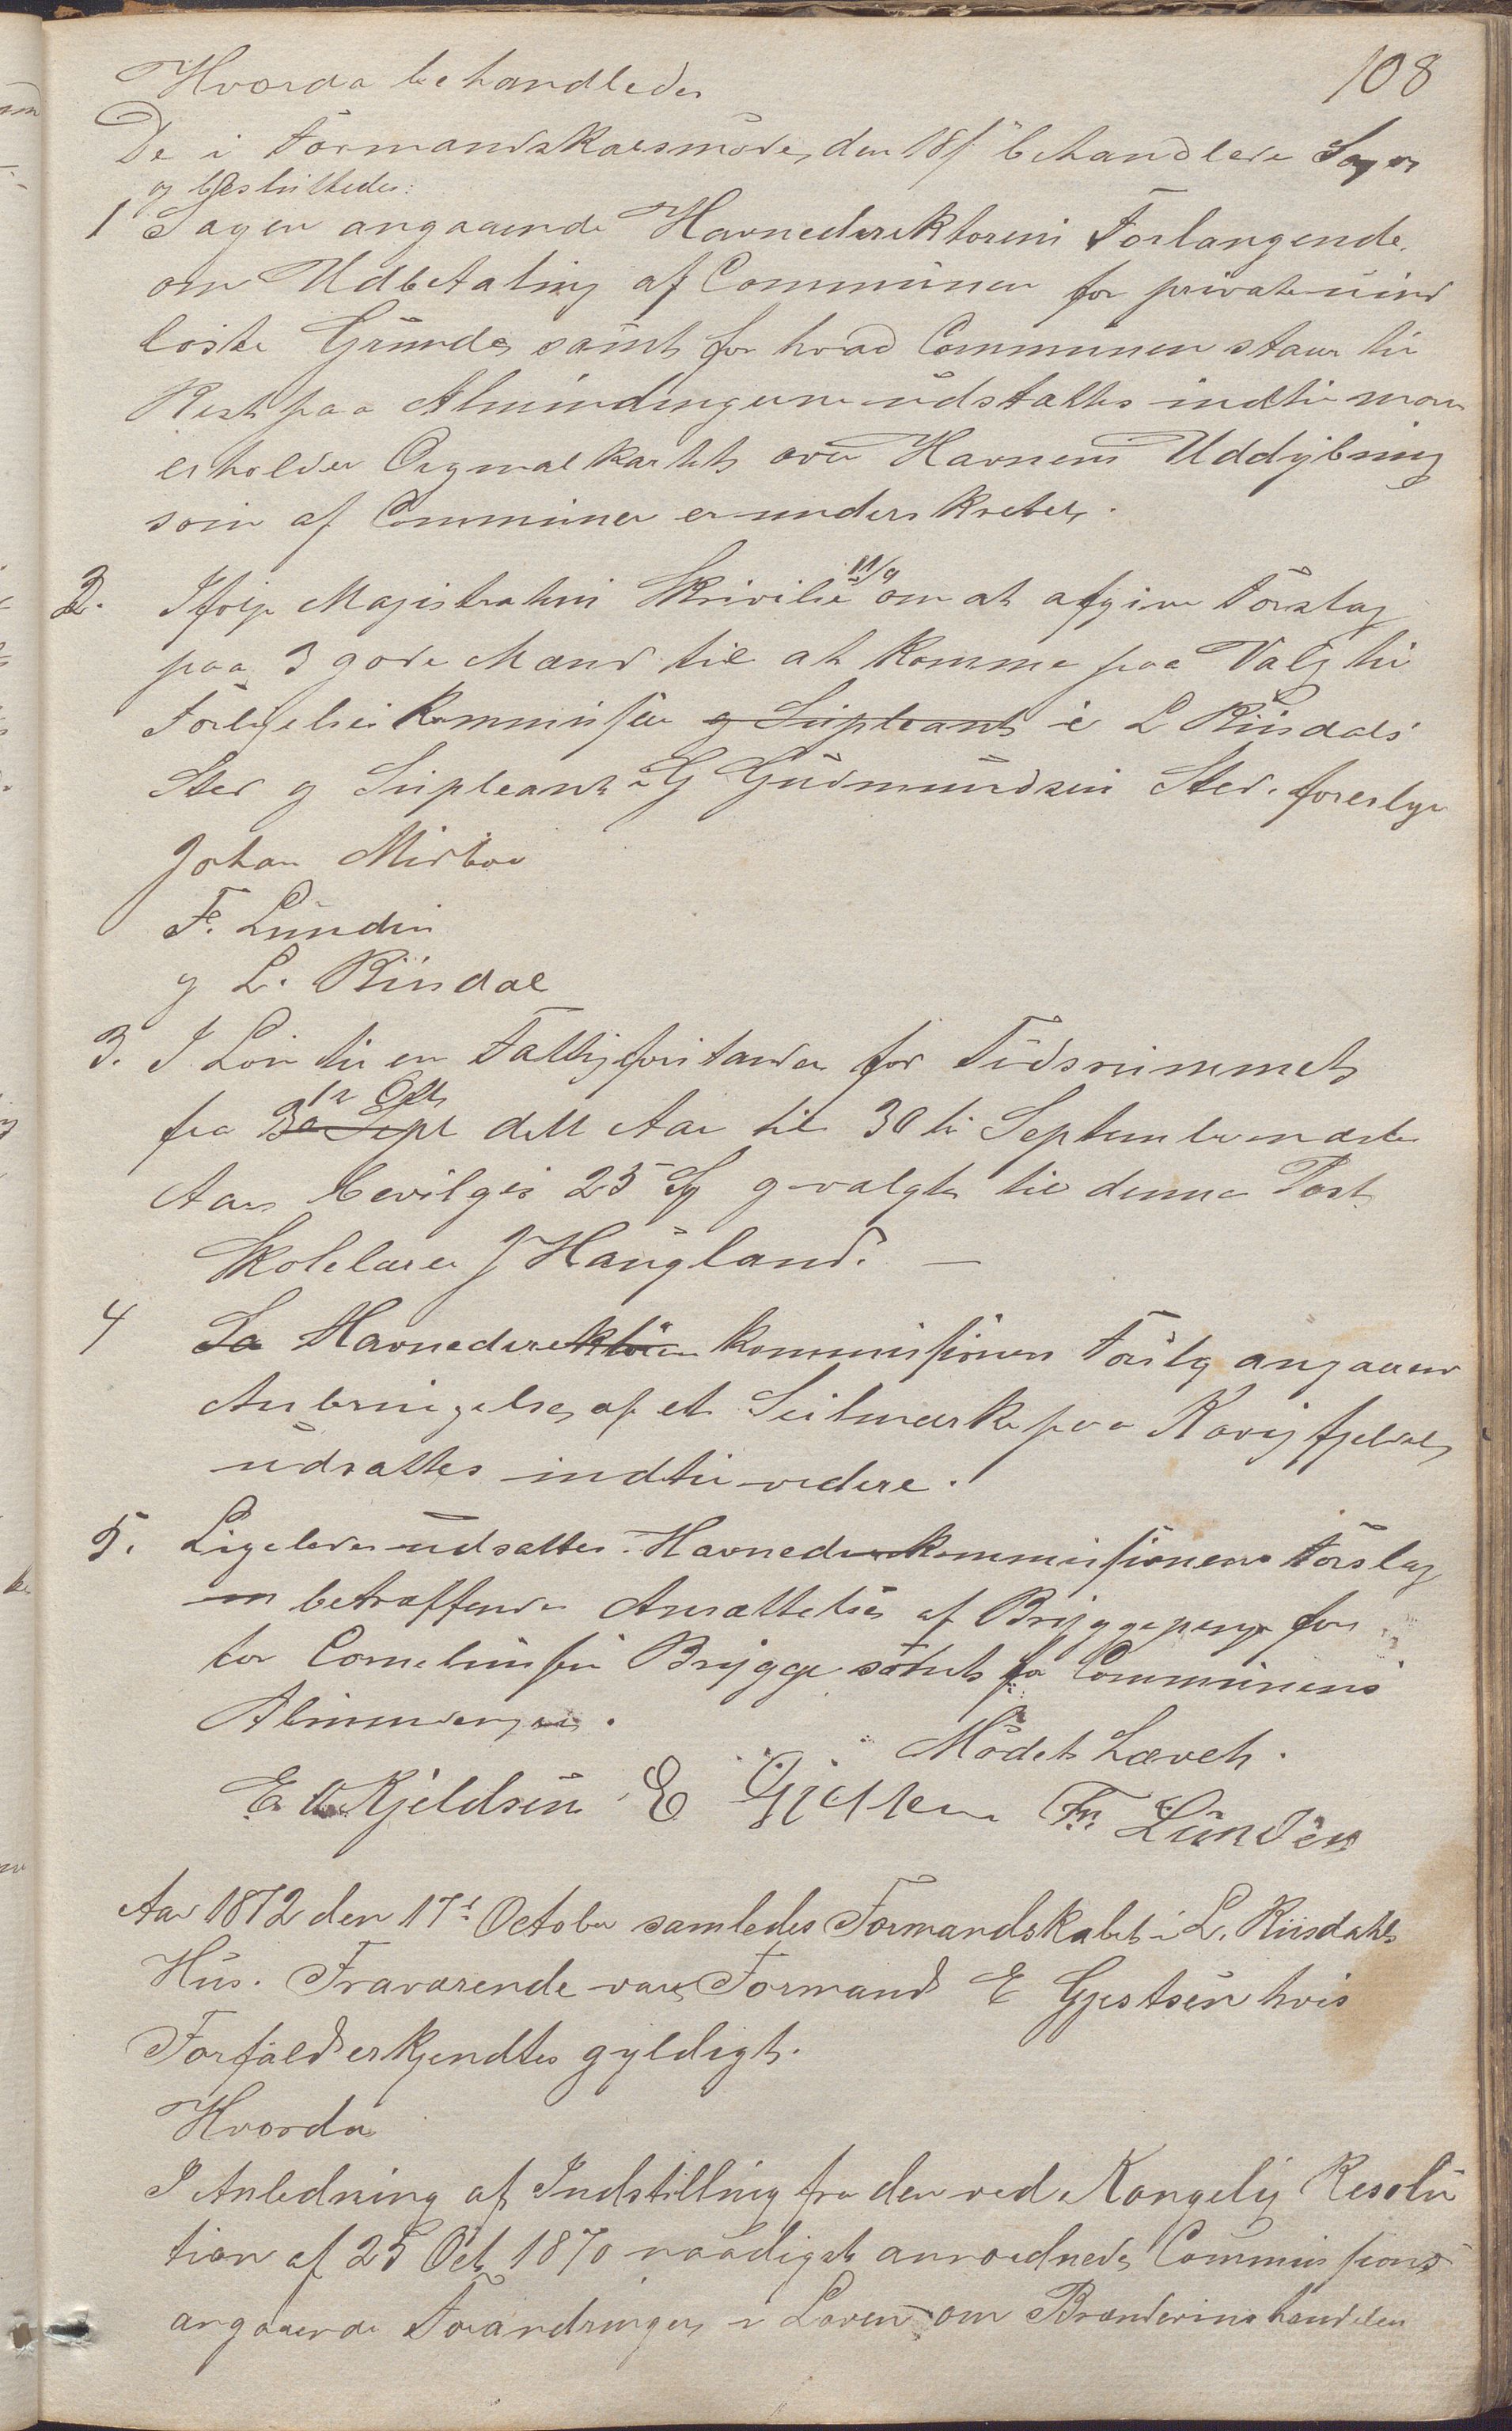 108
Hvorda behandledes
De i Formandskabsmøde, den 18/ behandlede Sager
og besluttedes:
1 Sagen angaaende Havnedirektørens Forlangende
om Udbetaling af Communen for private uind
løste Grunde, samt for hvad Communen staar til
Rest paa Almindingerne udsættes indtil man
erholder Orginalkartet over Havnens Uddybning
som af Communen er underskrevet.
2. Ifølge Magistratens Skrivelse 11/9 om at afgive Forslag
paa 3 gode Mænd til at komme paa Valg til
Forligelseskommissær og Supleant i L Riisdals
Sted og Supleant i G Gudmundsens Sted. foreslaes
Johan Midbøe
Fr. Lunden
og L. Riisdal
3. I Løn til en Fattigforstander for Tidsrummet
1n Octb
fra 30 Sept dette Aar til 30te September næste
Aar bevilges 25 Sp og valgtes til denne Post
Skolelærer J Haugland. —
4 Sa Havnedirektøren kommissionens Forslag angaaende
Anbringelse af et Seilmærke paa Kavigfjeldet
udsættes indtil videre.
5. Ligeledes udsættes Havnedirekommissionens Forslag
om betræffende Ansættelse af Bryggepenge for
tor Corneliussens Brygge samt for Communens
Almindinger.
Mødet hævet.
E A Kjeldsen E Gjestsen Fr. Lunden
Aar 1872 den 17d October samledes Formandskabet i L. Riisdahls
Hus. Fraværende var Formand E Gjestsen hvis
Forfald erkjendtes gyldigt.
Hvorda
I Anledning af Indstilling fra den ved Kongelig Resolu
tion af 25 Oct 1870 naadigst anordnede Commissions
angaaende Forandringer i Loven om Brændevinshandelen